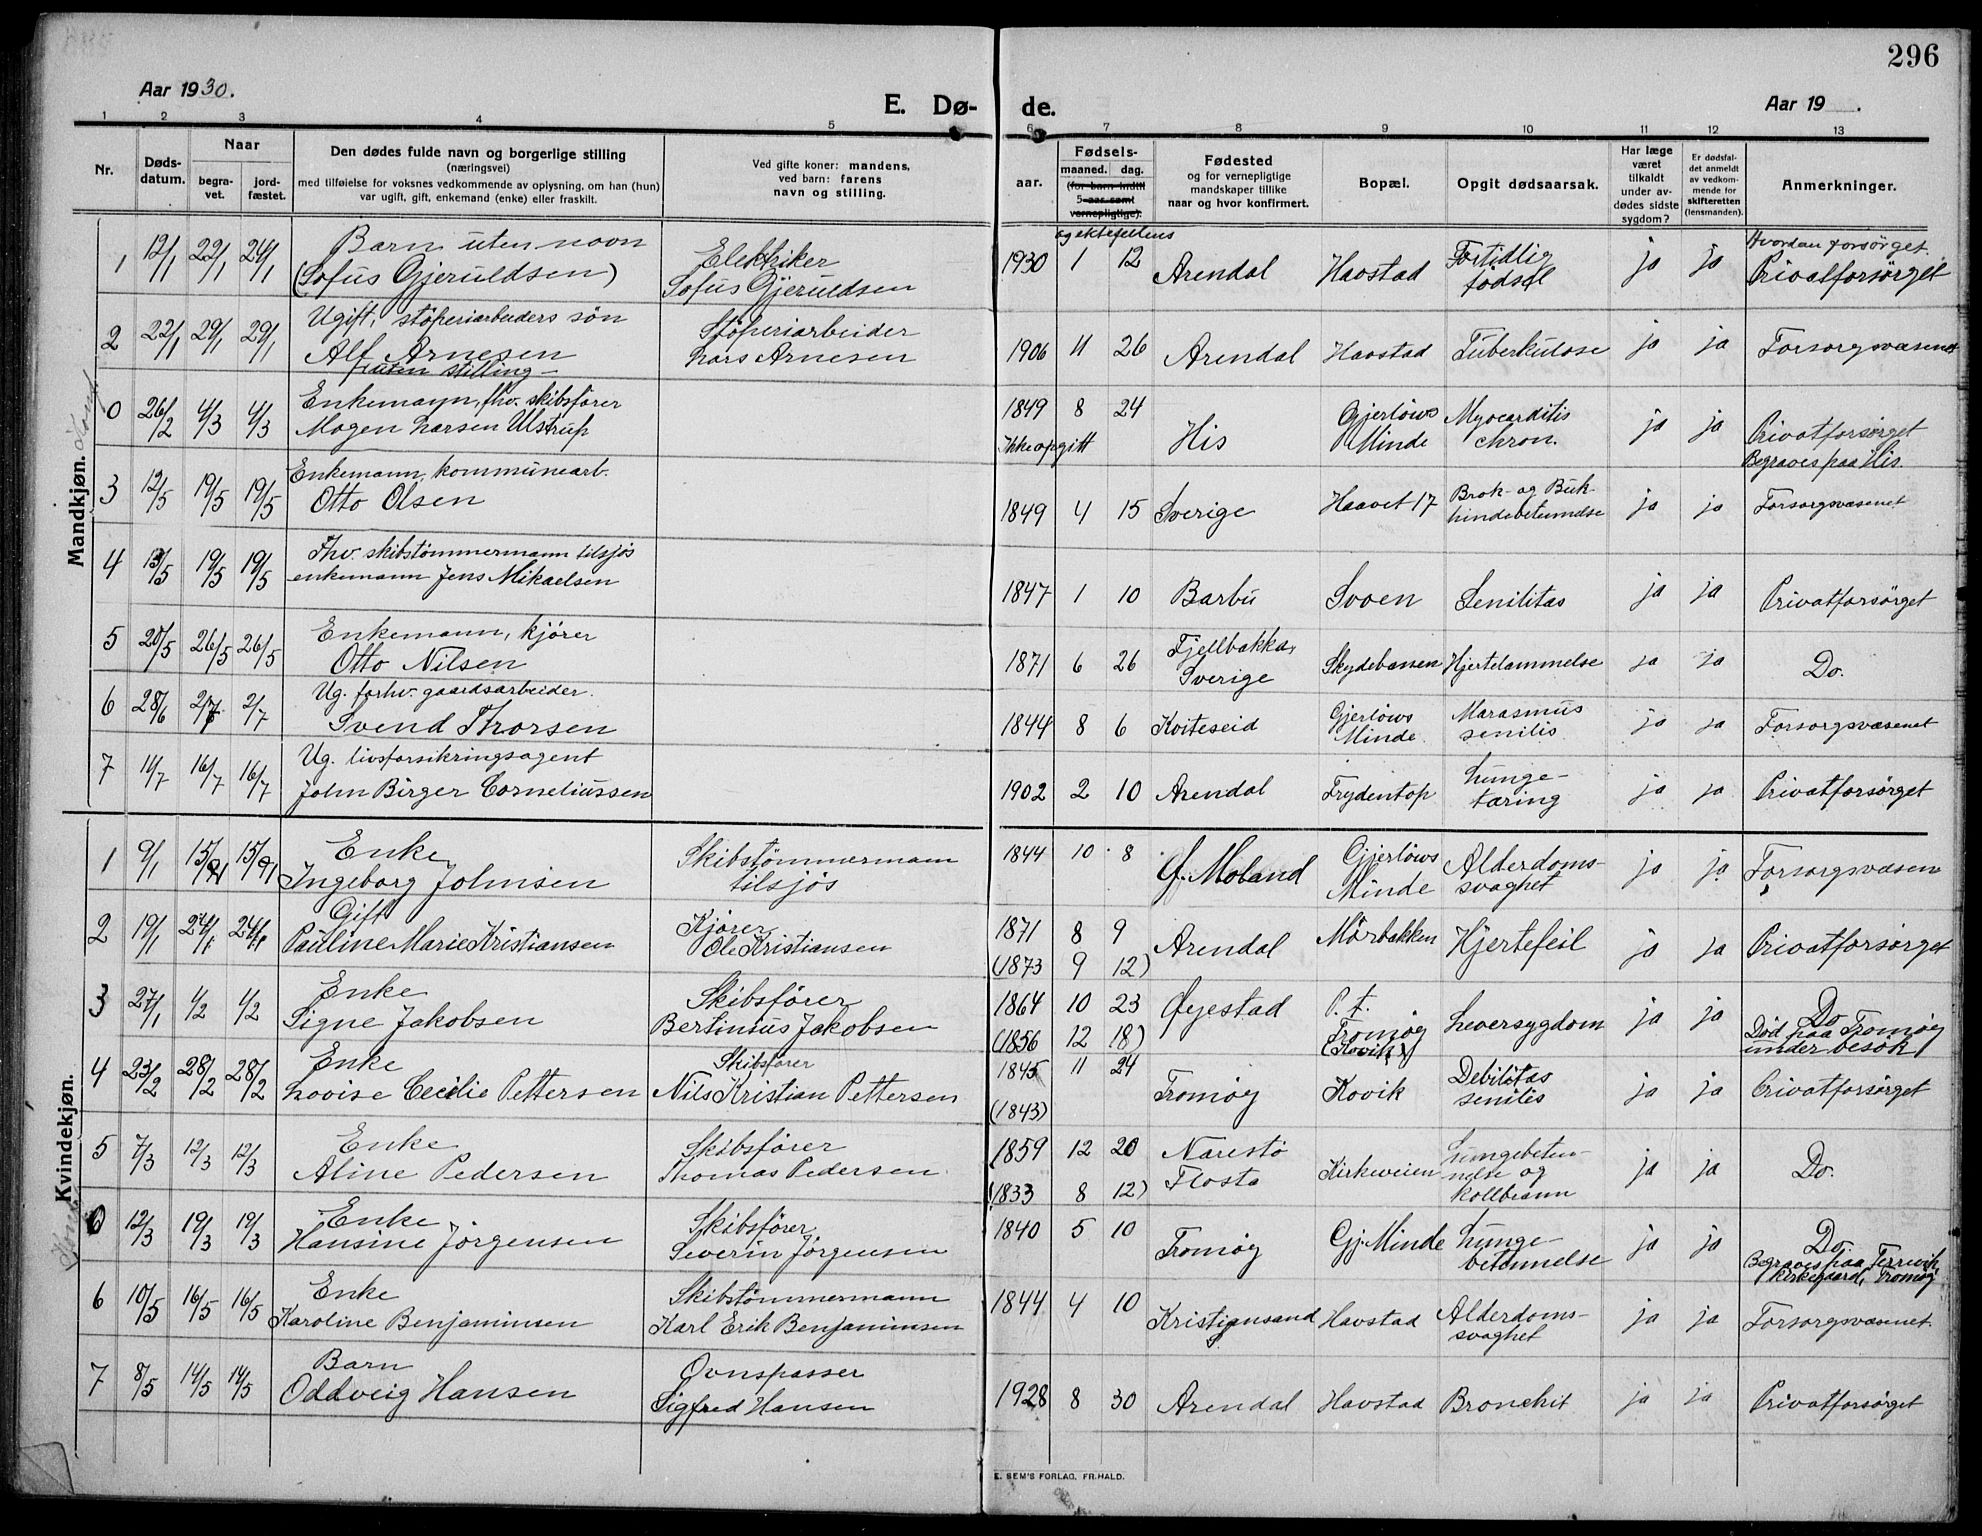 296
Aar 1930.
E. Dø-
de.
Aar 19 .
1 2 3 4 5
6 7 8 9 10 11 12 13
Nr.
Døds-
datum.
Naar
begra-
vet.
jord-
fæstet.
Den dødes fulde navn og borgerlige stilling
(næringsvei)
med tilføielse for voksnes vedkommende av oplysning, om han (hun)
var ugift, gift, enkemand (enke) eller fraskilt.
Ved gifte koner: mandens,
ved barn: farens
navn og stilling.
aar.
Fødsels-
maaned. dag.
(for barn indtil
5 aar samt
vernepligtige).
og ektefellens
Fødested
og for vernepligtige
mandskaper tillike
naar og hvor konfirmert.
Bopæl.
Opgit dødsaarsak.
Har læge
været
tilkaldt
under av-
dødes sidste
sygdom?
Er dødsfal-
det anmeldt
av vedkom-
mende for
skifteretten
(lensmanden).
Anmerkninger.
Hvordan forsørget.
Mandkjøn.
1 12/1 22/1 24/1 Barn uten navn
(Sofus Gjeruldsen)
Elektriker
Sofus Gjeruldsen
1930 1 12 Arendal Havstad Fortidlig
fødsel
ja ja Privatforsørget
2 22/1 29/1 29/1 Ugift, støperiarbeiders søn
Alf Arnesen
uten stilling
Støperiarbeider
Lars Arnesen
1906 11 26 Arendal Havstad Tuberkulose ja ja Forsorgsvæsenet
0 26/2 4/3 4/3 Enkemann, fhv. skibsfører
Mogen Larsen Ulstrup
1849 8 24
Ikke opgitt
His Gjerløws
Minde
Myocarditis
chron.
ja ja Privatforsørget
Begraves paa His.
3 12/5 19/5 19/5 Enkemann, kommunearb.
Otto Olsen
1849 4 15 Sverige Haavet 17 Brok- og Buk-
hindebetennelse
ja ja Forsorgsvæsenet
4 13/5 19/5 19/5 Fhv. skibstømmermann tilsjøs
enkemann Jens Mikaelsen
1847 1 10 Barbu Svoen Senilitas ja ja Privatforsørget
5 20/5 26/5 26/5 Enkemann, kjører
Otto Nilsen
1871 6 26 Fjellbakka,
Sverige
Skydebanen Hjertelammelse ja ja Do.
6 28/6 2/7 2/7 Ug. forhv. gaardsarbeider.
Svend Thorsen
1844 8 6 Kviteseid Gjerløws
Minde
Marasmus
senilis
ja ja Forsorgsvæsenet
7 11/7 16/7 16/7 Ug. livsforsikringsagent
John Birger Corneliussen
1902 2 10 Arendal Frydentop Lunge-
tæring
ja ja Privatforsørget
Kvindekjøn.
1 9/1 15/1 15/1 Enke
Ingeborg Johnsen
Skibstømmermann
tilsjøs
1844 10 8 Ø. Moland Gjerløws
Minde
Alderdoms-
svaghet
ja ja Forsorgsvæsen
2 19/1 24/1 24/1 Gift
Pauline Marie Kristiansen
Kjører
Ole Kristiansen
1871 8 9
(1873 9 12)
Arendal Mørbakken Hjertefeil ja ja Privatforsørget
3 27/1 4/2 4/2 Enke
Signe Jakobsen
Skibsfører
Bertinius Jakobsen
1864 10 23
(1856 12 18)
Øyestad P. t.
Tromøy
(Kovik)
Leversygdom ja ja Do
Død paa Tromøy
under besøk
4 23/2 28/2 28/2 Enke
Lovise Cecilie Pettersen
Skibsfører
Nils Kristian Pettersen
1845 11 24
(1843)
Tromøy Kovik Debilitas
senilis
ja ja Privatforsørget
5 7/3 12/3 12/3 Enke
Aline Pedersen
Skibsfører
Thomas Pedersen
1859 12 20
(1833 8 12)
Narestø
Flosta
Kirkeveien Lungebeten-
nelse og
koldbrann
ja ja Do.
0 12/3 19/3 19/3 Enke
Hansine Jørgensen
Skibsfører
Severin Jørgensen
1840 5 10 Tromøy Gj. Minde Lunge-
betennelse
ja ja Do.
Begraves paa Færvik
kirkegaard, Tromøy
6 10/5 16/5 16/5 Enke
Karoline Benjaminsen
Skibstømmermann
Karl Erik Benjaminsen
1844 4 10 Kristiansand Havstad Alderdoms-
svaghet
ja ja Forsorgsvæsenet.
7 8/5 14/5 14/5 Barn
Oddveig Hansen
Ovnspasser
Sigfred Hansen
1928 8 30 Arendal Havstad Bronchit ja ja Privatforsørget
E. SEM'S FORLAG, FR.HALD.